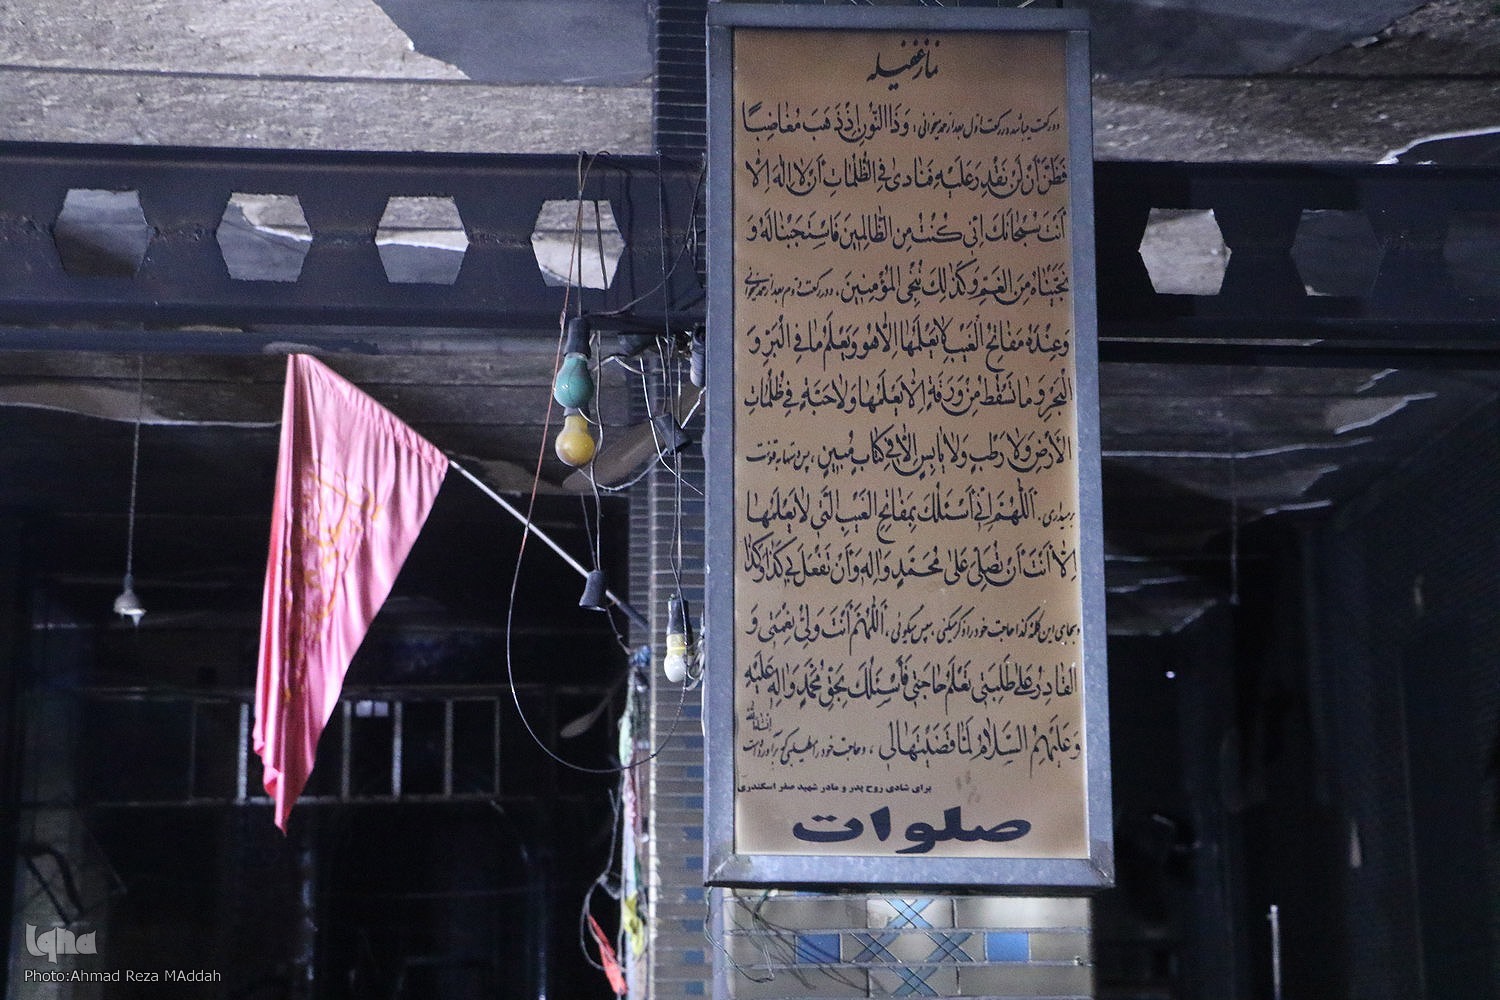 نماز غفیله
دو رکعت میباشد در رکعت اول بعد از حمد میخوانی: وَذَا النُّونِ اِذْ ذَهَبَ مُغاضِبًا
فَظَنَّ أَنْ لَنْ نَقْدِرَ عَلَيْهِ فَنادىٰ فِى الظُّلُماتِ أَنْ لا اِلٰهَ اِلّا
أَنْتَ سُبْحانَكَ اِنّى كُنْتُ مِنَ الظّالِمينَ فَاسْتَجَبْنالَهُ وَ
نَجَّيْناهُ مِنَ الْغَمِّ وَكَذٰلِكَ نُنْجِى الْمُؤْمِنينَ، در رکعت دوم بعد از حمد میخوانی
وَعِنْدَهُ مَفاتِحُ الْغَيْبِ لا يَعْلَمُها اِلّا هُوَ وَيَعْلَمُ ما فِى الْبَرِّ وَ
الْبَحْرِ وَ ما تَسْقُطُ مِنْ وَرَقَةٍ اِلّا يَعْلَمُها وَلا حَبَّةٍ فى ظُلُماتِ
الْأَرْضِ وَلا رَطْبٍ وَلا يابِسٍ اِلّا فى كِتابٍ مُبينٍ، پس دستها به قنوت
برمیداری، اَللّٰهُمَّ اِنّى أَسْئَلُكَ بِمَفاتِحِ الْغَيْبِ الَّتى لا يَعْلَمُها
اِلّا أَنْتَ أَنْ تُصَلِّىَ عَلىٰ مُحَمَّدٍ وَالِهِ وَأَنْ تَفْعَلَ بى كَذا وَكَذا
وبجای این کلمه کذا حاجت خود را ذکر میکنی، سپس میگوئی، اَللّٰهُمَّ أَنْتَ وَلِىُّ نِعْمَتى وَ
الْقادِرُ عَلىٰ طَلِبَتى تَعْلَمُ حاجَتى فَأَسْئَلُكَ بِحَقِّ مُحَمَّدٍ وَالِهِ عَلَيْهِ
وَعَلَيْهِمُ السَّلامُ لَمّا قَضَيْتَهالى، و حاجت خود را میطلبی که برآورده است انشاءالله
برای شادی روح پدر و مادر شهید صفر اسکندری
صلوات
iqna
Photo:Ahmad Reza MAddah